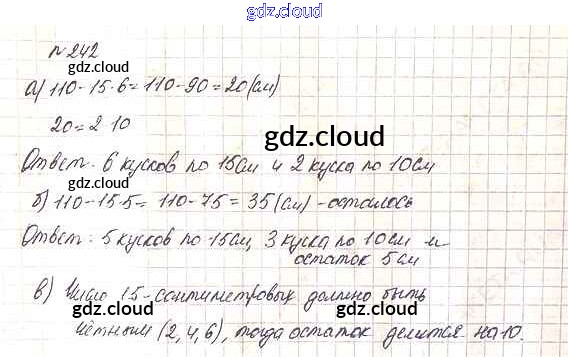 gdz.cloud
№242
gdz.cloud
а) 110-15·6=110-90=20(см)
20=2·10
gdz.cloud
Ответ: 6 кусков по 15см и 2 куска по 10см
gdz.cloud
б) 110-15·5= 110-75=35(см)-осталось
Ответ: 5 кусков по 15см, 3 куска по 10см и
остаток 5см
gdz.cloud
в) Число 15-сантиметровых должно быть
gdz.cloud gdz.cloud
чётным (2,4,6), тогда остаток делится на 10.